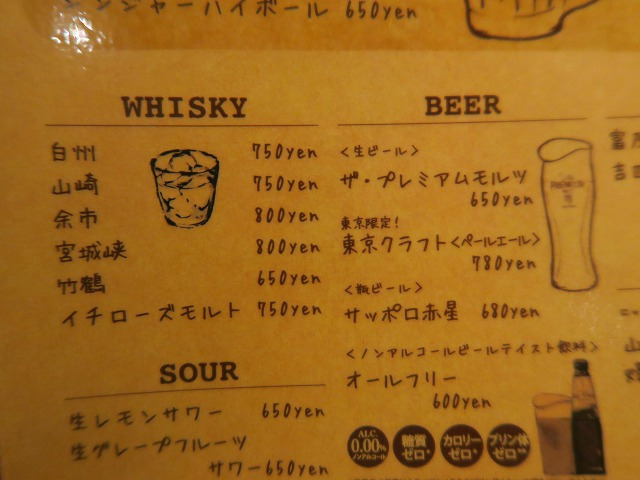 ジンジャーハイボール 650yen
WHISKY
白州 750yen
山崎 750yen
余市 800yen
宮城峡 800yen
竹鶴 650yen
イチローズモルト 750yen
SOUR
生レモンサワー 650yen
生グレープフルーツ
サワー650yen
BEER
<生ビール>
ザ・プレミアムモルツ
650yen
東京限定!
東京クラフト<ペールエール>
780yen
<瓶ビール>
サッポロ赤星 680yen
<ノンアルコールビールテイスト飲料>
オールフリー
600yen
ALC. 0.00% ノンアルコール
糖質ゼロ*
カロリーゼロ*
プリン体ゼロ**
PREMIUM